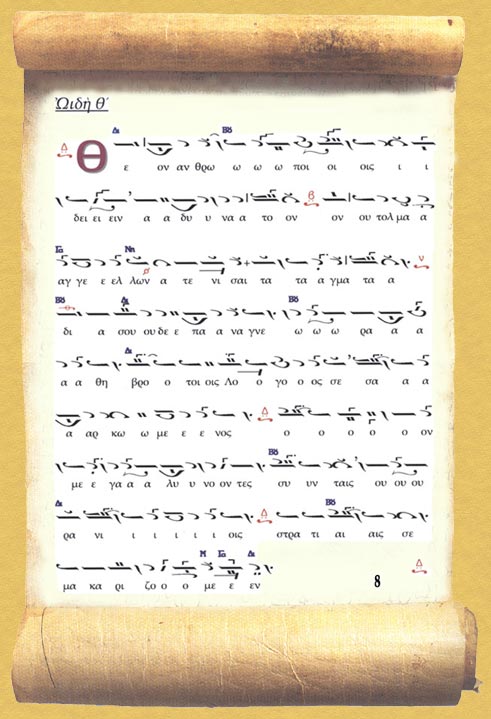 Ὠιδὴ θ΄
Θ ε ον αν θρω ω ω ω ποι οι οις ι ι
δει ει ειν α α δυ υ να α το ον ον ου τολ μα α
αγ γε ε ελ λων α τε νι σαι τα τα α γμα τα α
δι α σου ου δε ε πα α να γνε ω ω ω ρα α α
α α θη βρο ο τοι οις Λο ο γο ο ος σε σα α α
α αρ κω ω με ε ε νος ο ο ο ο ο ον
με ε γα α α λυ υ νο ον τες συ υν ταις ου ου ου
ρα νι ι ι ι ι ι οις στρα τι αι αις σε
μα κα ρι ζο ο ο με ε εν
8